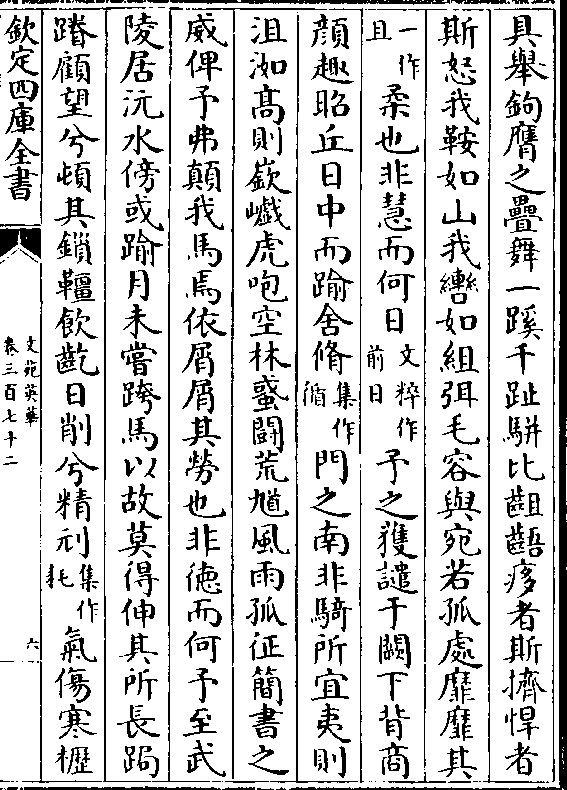 具舉鉤膺之疊舞一蹊千趾駢比齟齬痑者斯擠悍者
斯怒我鞍如山我轡如組弭毛容與宛若孤處靡靡其
一作且柔也非慧而何日文粹作前日予之獲譴于闕下背商
顔趣昭丘日中而踰舍脩集作循門之南非騎所宜夷則
沮洳髙則嶔巇虎咆空林蜑鬭荒馗風雨孤征簡書之
威俾予弗顛我馬焉依屑屑其勞也非徳而何予至武
陵居沅水傍或踰月未嘗跨馬以故莫得伸其所長跼
蹐顧望兮頓其鎻韁飲齕日削兮精刓集作耗氣傷寒櫪
欽定四庫全書
文苑英華
卷三百七十二
六